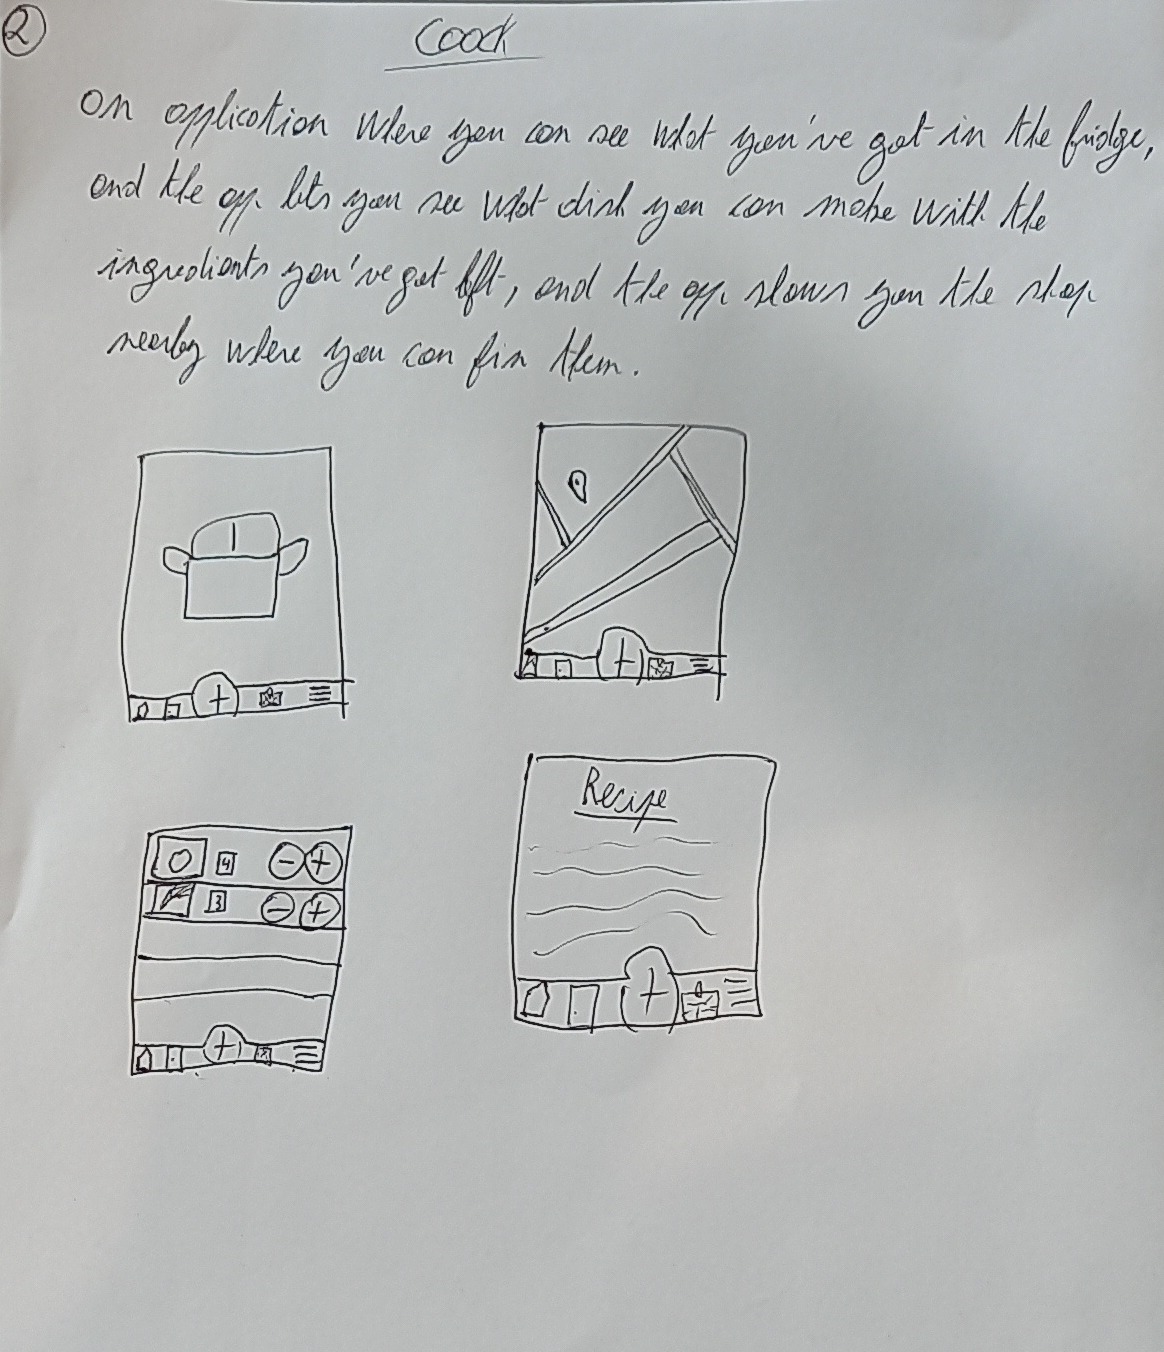 2
Coock
an application where you can see what you've got in the fridge,
and the app lets you see what dish you can make with the
ingredients you've got left, and the app shows you the shop
nearby where you can fin them.
+
+
4 - +
3 - +
Recipe
+
+